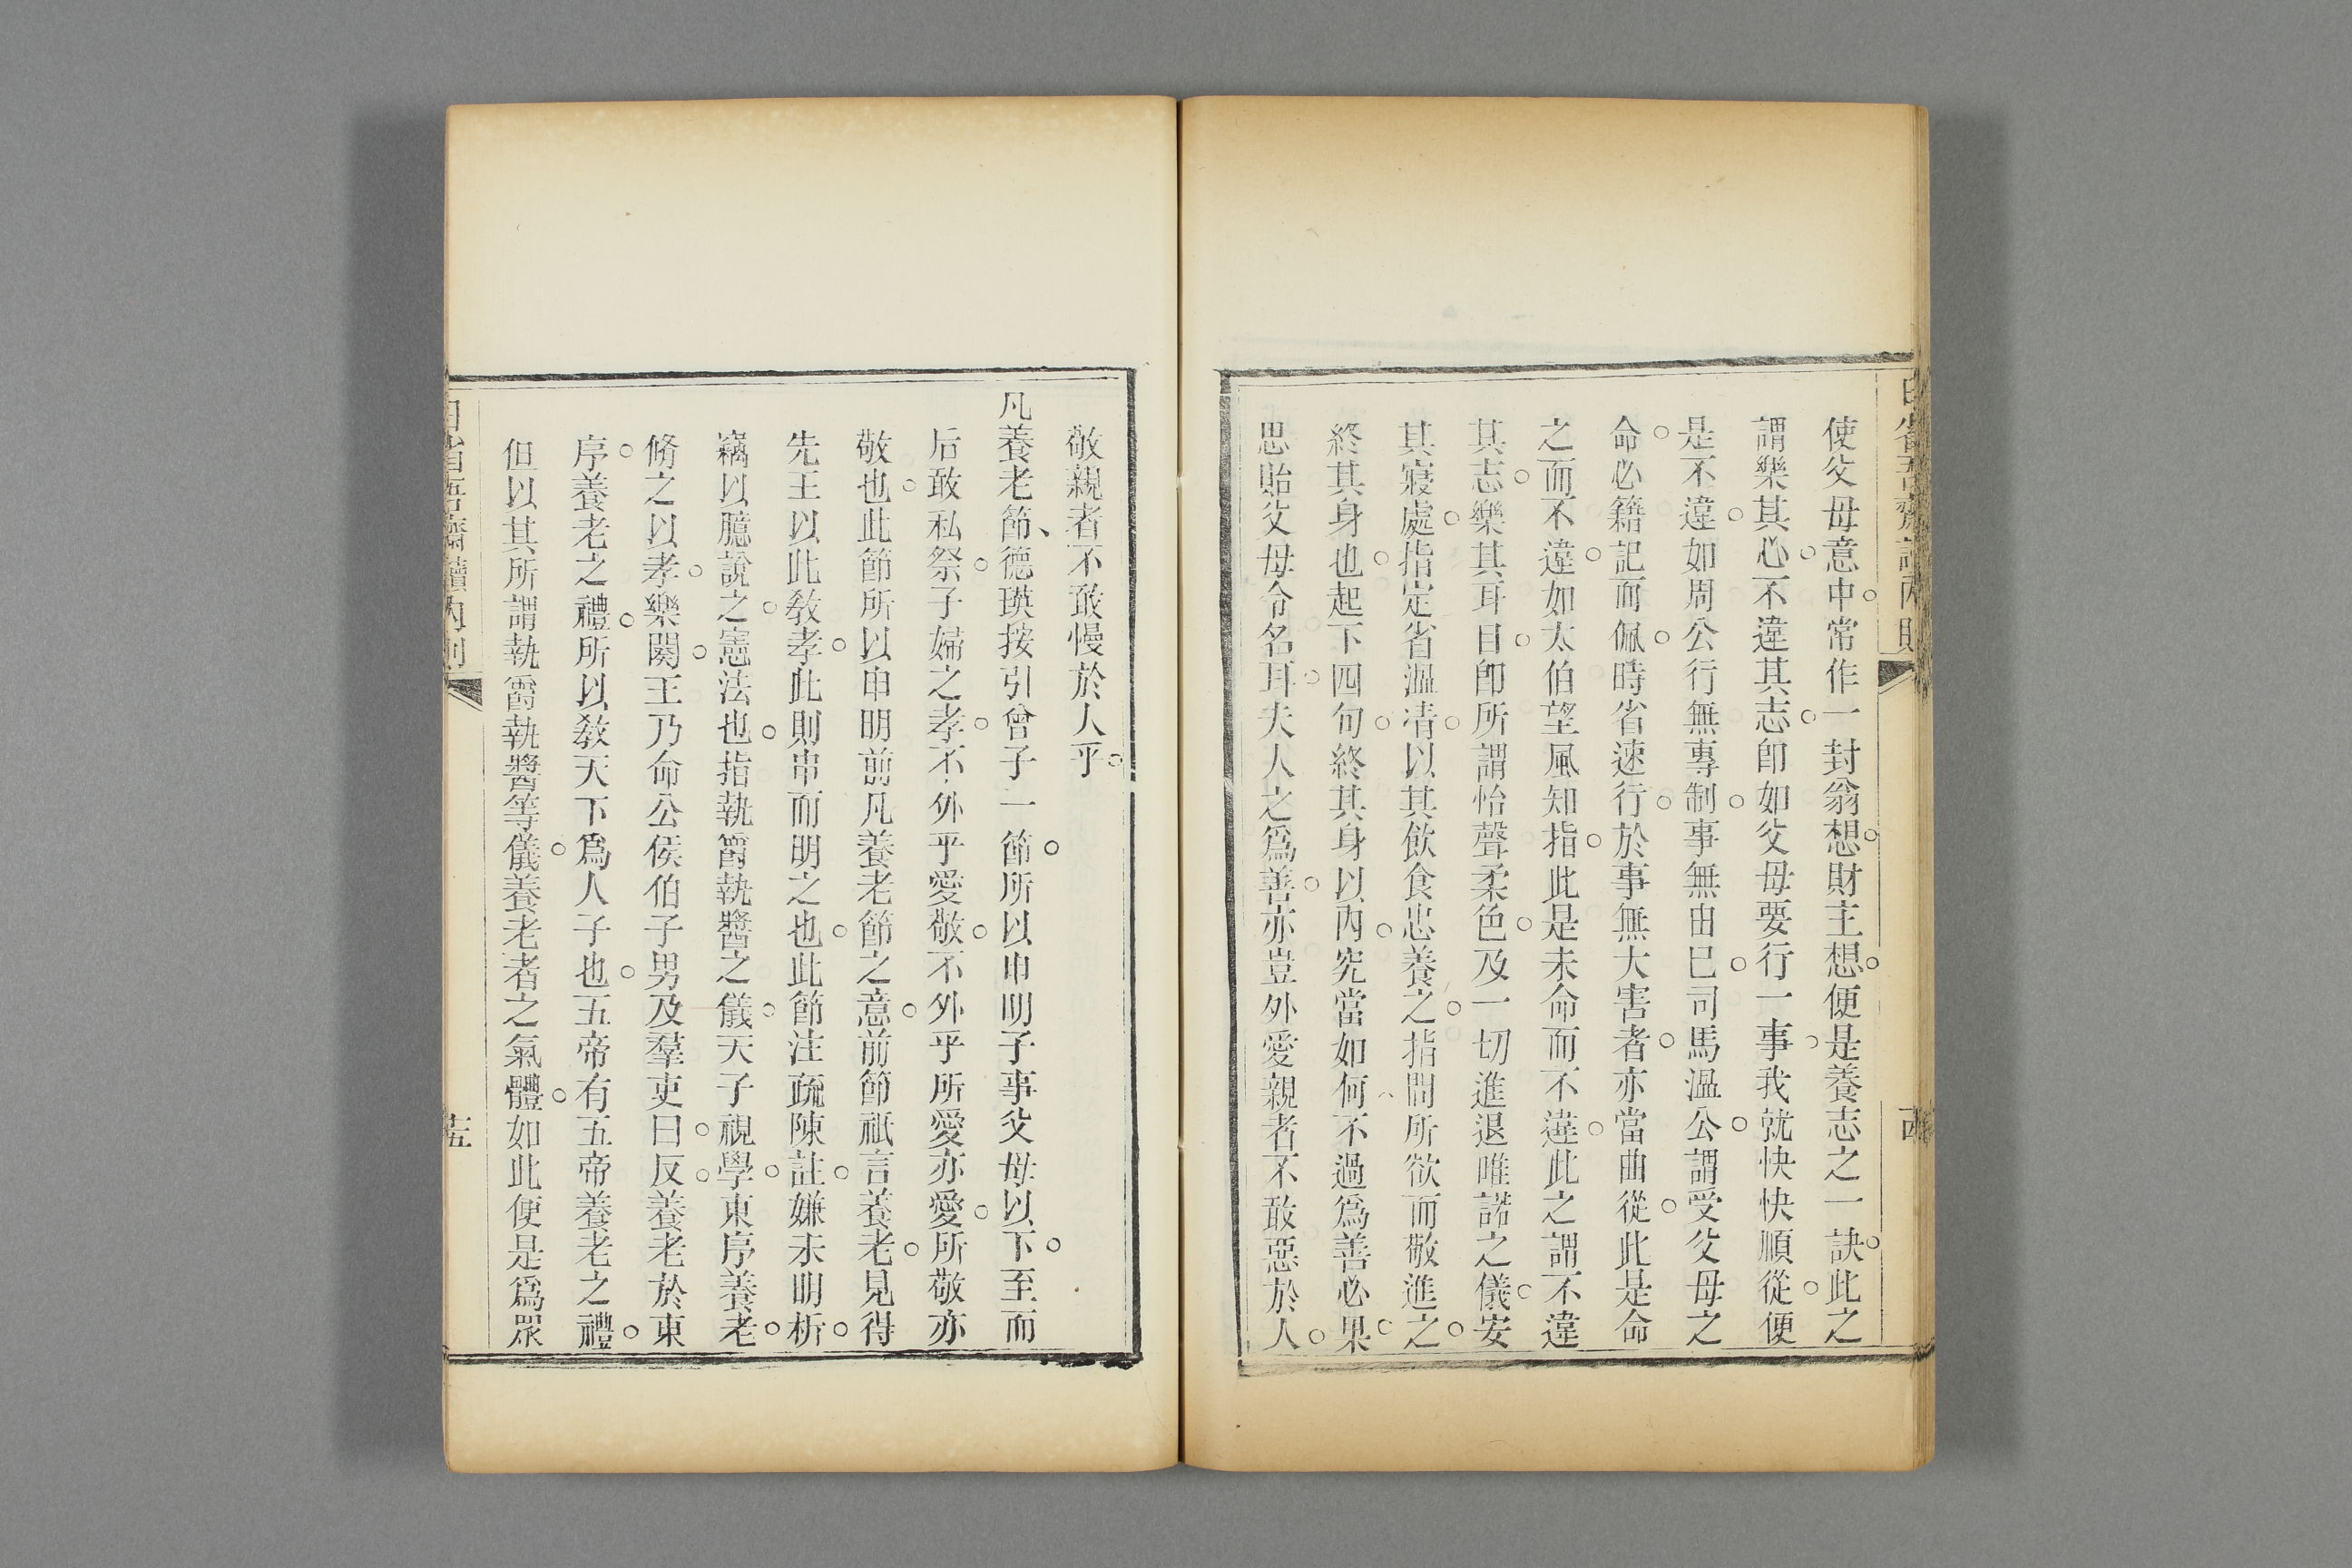 使父母意中常作一封翁想財主想便是養志之一訣此之
謂樂其心不違其志卽如父母要行一事我就快快順從便
是不違如周公行無專制事無由已司馬溫公謂受父母之
命必籍記而佩時省速行於事無大害者亦當曲從此是命
之而不違如太伯望風知指此是未命而不違此之謂不違
其志樂其耳目卽所謂怡聲柔色及一切進退唯諾之儀安
其寢處指定省溫凊以其飲食忠養之指問所欲而敬進之
終其身也起下四句終其身以內究當如何不過爲善必果
思貽父母令名耳夫人之爲善亦豈外愛親者不敢惡於人
敬親者不敢慢於人乎
凡養老節德瑛按引曾子一節所以申明子事父母以下至而
后敢私祭子婦之孝不外乎愛敬不外乎所愛亦愛所敬亦
敬也此節所以申明前凡養老節之意前節祇言養老見得
先王以此敎孝此則串而明之也此節注疏陳註嫌未明析
竊以臆說之憲法也指執爵執醬之儀天子視學東序養老
脩之以孝樂闋王乃命公侯伯子男及羣吏曰反養老於東
序養老之禮所以敎天下爲人子也五帝有五帝養老之禮
但以其所謂執爵執醬等儀養老者之氣體如此便是爲眾